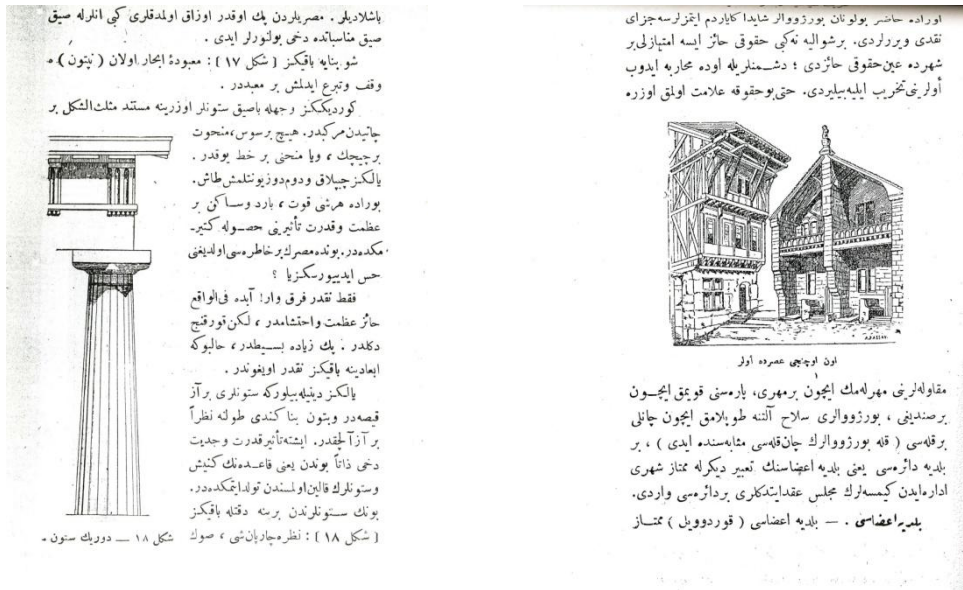 اوراده حاضر بولونان بورژووالر شایدا کایاردم ایتمزلرسه جزای
نقدی ویررلردی. برشوالیه نه‌کبی حقوقی حائز ایسه امتیازلی‌بر
شهرده عین‌حقوقی حائزدی ؛ دشمنلریله اوده محاربه ایدوب
أولرینی‌تخریب ایلیه‌بیلیردی. حتی‌بوحقوقه علامت اولمق اوزره
اون اوچنجی عصرده أولر
مقاوله‌لرینی مهرله‌مك ایچون برمهری، پاره‌سنی قویمق ایچون
برصندیغی ، بورژووالری سلاح آلتنه طوپلامق ایچون چاکلی
برقله‌سی ( قله بورژووالرك چان‌قله‌سی مثابه‌سنده ایدی ) ، بر
بلدیه دائره‌سی یعنی بلدیه اعضاسنك تعبیر دیکرله ممتاز شهری
اداره‌ایدن کیمسه‌لرك مجلس عقدایتدکلری بردائره‌سی واردی.
بلدیه‌اعضاسی . — بلدیه اعضاسی ( قوردوویل ) ممتاز
باشلادیلر . مصریلردن پك اوقدر اوزاق اولمدقلری کبی انلرله صیق
صیق مناسباتده دخی بولنورلر ایدی .
شو بنایه باقیکز [ شکل ١٧ ] : معبودهٔ ابحار اولان ( نپتون ) ه
وقف وتبرع ایدلمش بر معبددر .
کوردیککز وجهله باصیق ستونلر اوزرینه مستند مثلث‌الشکل بر
چاتیدن مرکبدر. هیچ برسوس،منحوت
برچیچك ، ویا منحنی بر خط یوقدر .
یالکز چیپلاق ودوم‌دوز یونتلمش طاش.
بوراده هرشی قوت ، بارد وساکن بر
عظمت وقدرت تأثیرینی حصوله کتیر-
مکده‌در. بونده مصرك بر خاطره‌سی اولدیغنی
حس ایدییورسکز یا ؟
فقط نقدر فرق وار! آبده فی‌الواقع
حائز عظمت واحتشامدر ، لکن قورقنج
دکلدر . پك زیاده بسیطدر ، حالبوکه
ابعادینه باقیکز نقدر اویغوندر .
یالکز دینیله‌بیلورکه ستونلری برآز
قیصه‌در وبتون بنا کندی طولنه نظراً
بر آز آلچقدر. ایشته تأثیرقدرت وجدیت
دخی ذاتاً بوندن یعنی قاعده‌نك کنیش
وستونلرك قالین‌اولمسندن تولدایتمکده‌در.
بونك ستونلرندن برینه دقتله باقیکز
[ شکل ١٨ ] : نظره‌چارپان‌شی ، صوك
شکل ١٨ — دوریك ستون .